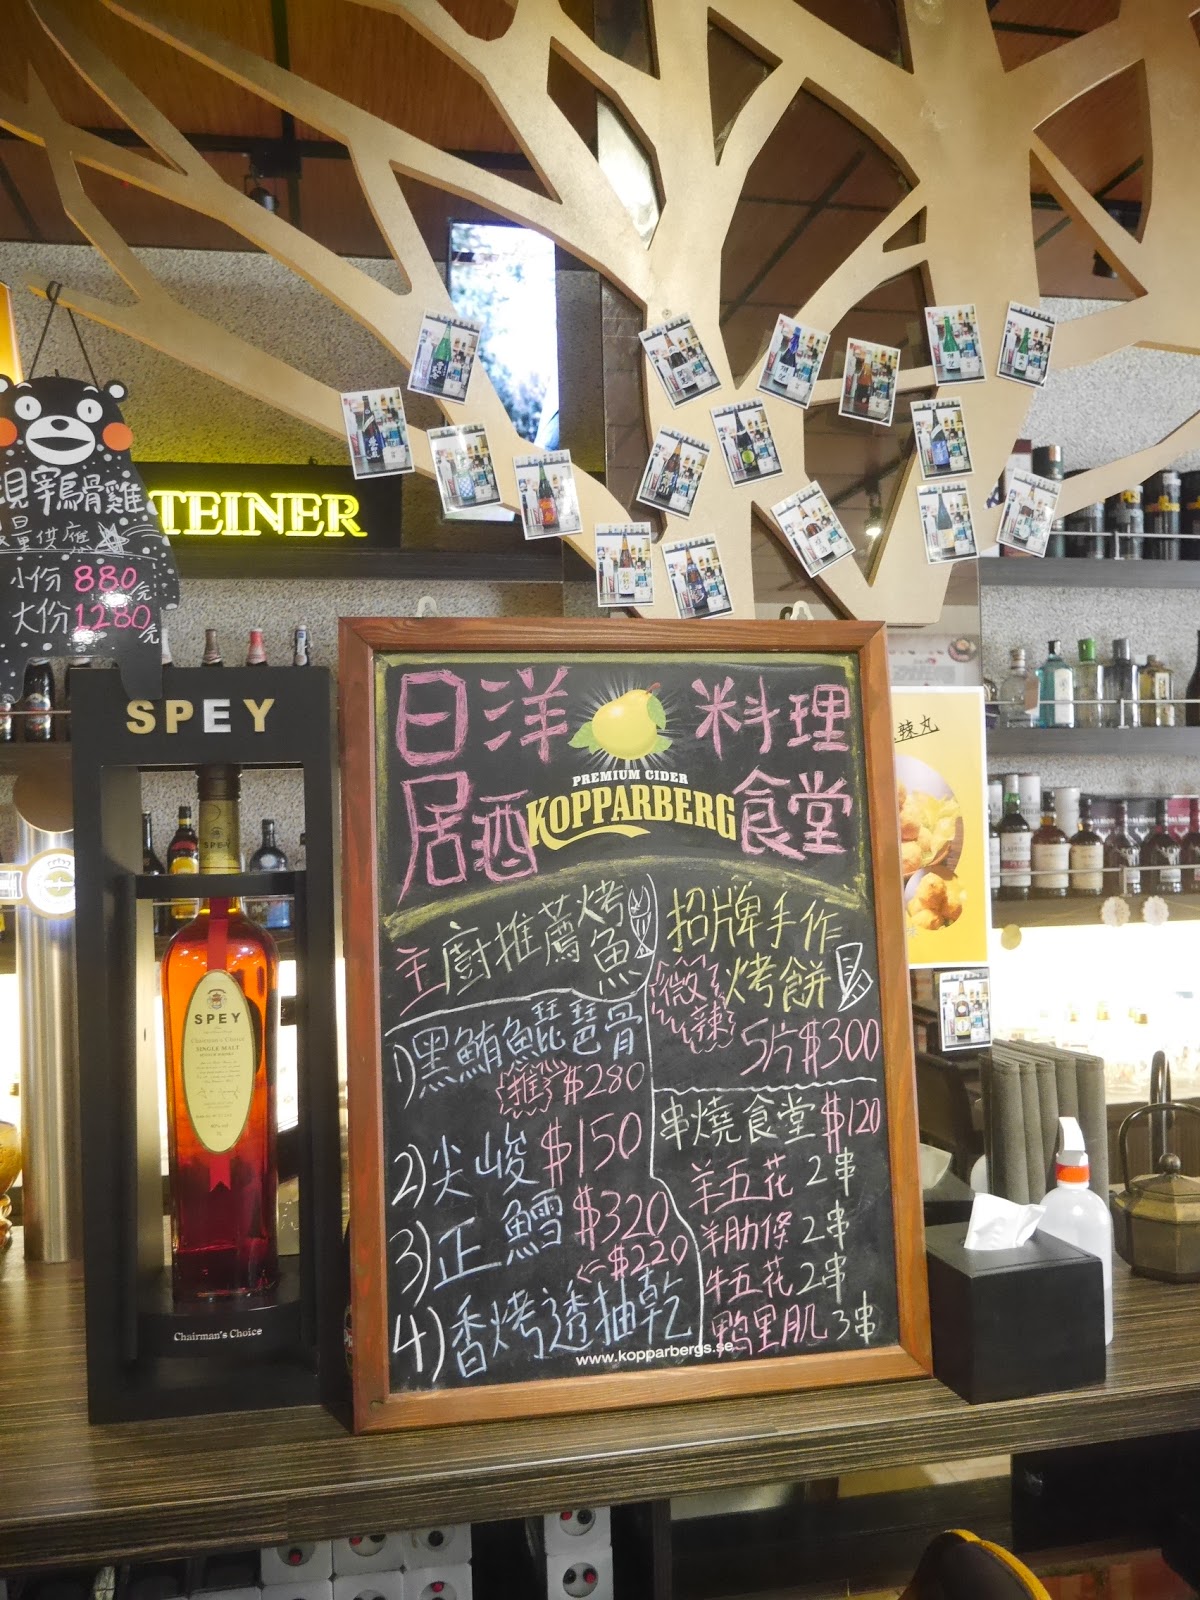 現宰烏骨雞
限量供應
小份880元
大份1280元
TEINER
SPEY
SPEY
Chairman's Choice
SINGLE MALT
Chairman's Choice
日洋 料理
PREMIUM CIDER
居酒 KOPPARBERG 食堂
主廚推薦烤魚
1)黑鮪鯤琵琶骨
推 $280
2)尖峻 $150
3)正鱈 $320
<=$220
4)香烤透抽乾
招牌手作
微辣 烤餅
5片$300
串燒食堂 $120
羊五花 2串
羊肋條 2串
牛五花 2串
鴨里肌 3串
www.kopparbergs.se
辣丸